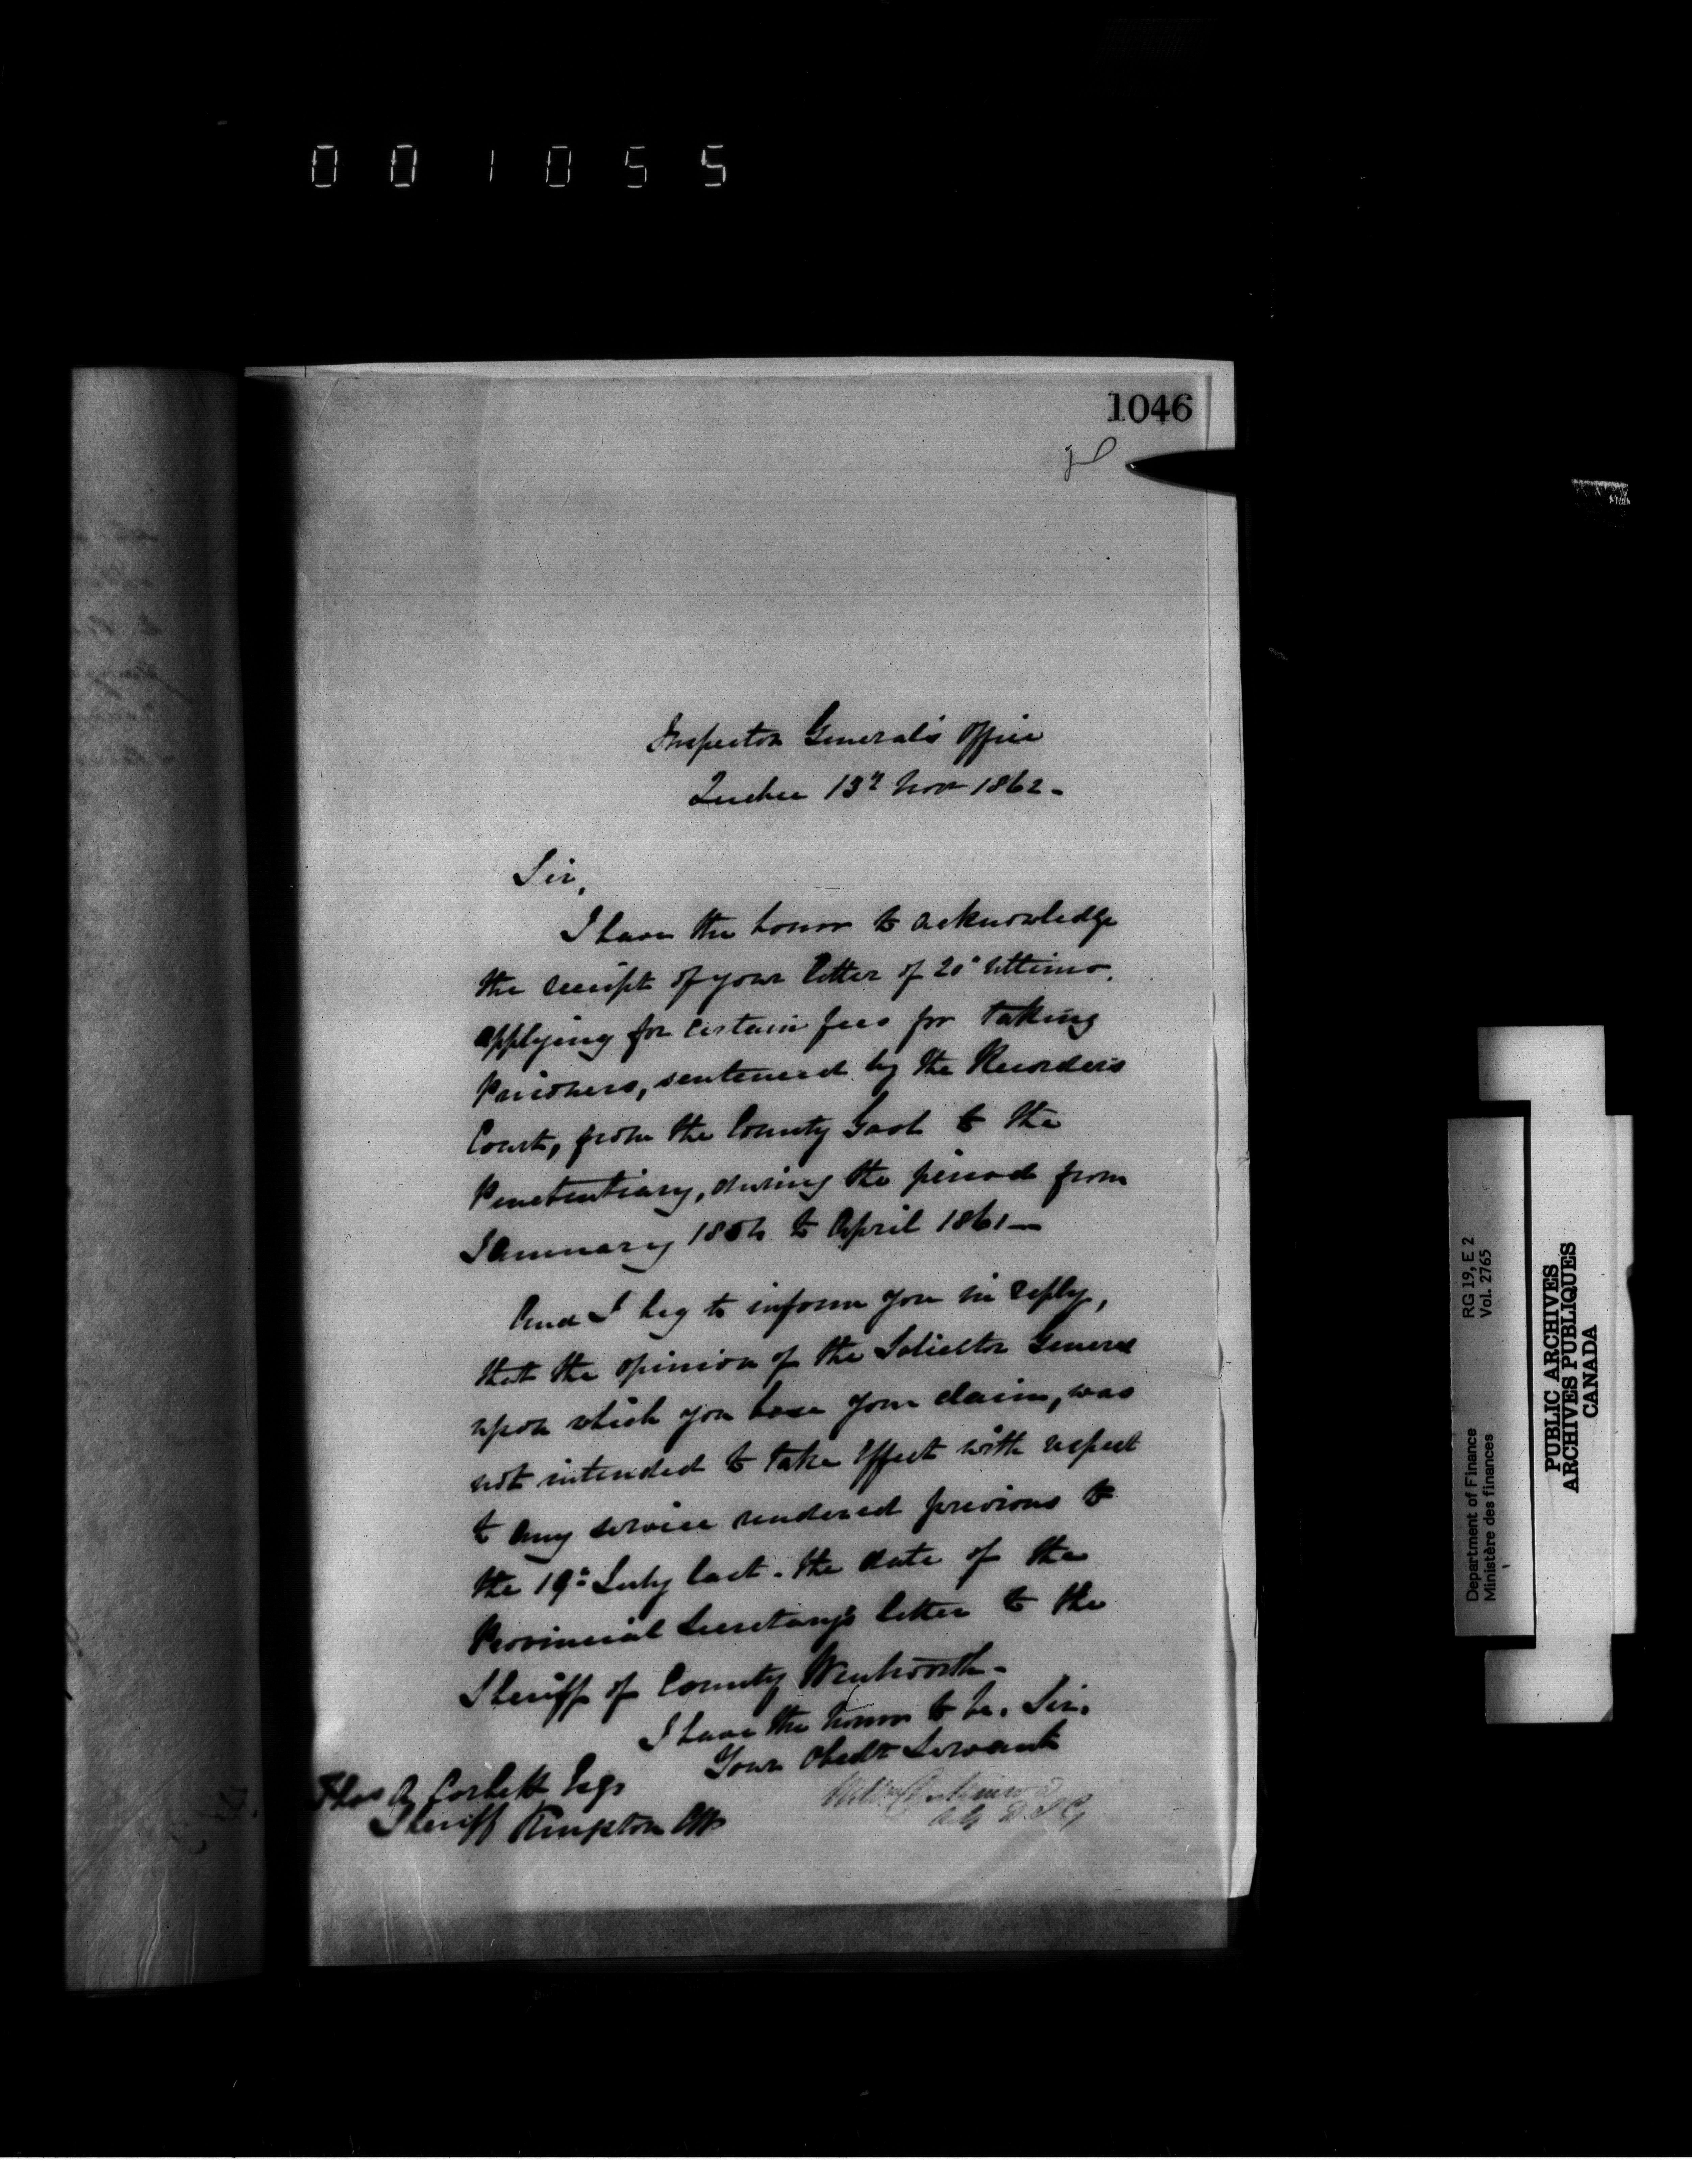 001055
1046
Inspector General's Office
Quebec 13th Nov 1862 -
Sir,
I have the honor to acknowledge
the receipt of your letter of 20th Ultimo,
applying for certain fees for taking
Prisoners, sentenced by the Recorder's
Court, from the County Gaol to the
Penetentiary, during the period from
January 1856 to April 1861 —
And I beg to inform you in reply,
that the opinion of the Solicitor General
upon which you base your claim, was
not intended to take effect with respect
to any service rendered previous to
the 19th July last. the date of the
Provincial Secretary's letter to the
Sheriff of County Wentworth -
I have the honor to be, Sir,
Your Obedt Servant
Thos A Corbett Esqr
Sheriff Kingston CW
Actg D I G
Department of Finance RG 19, E 2
Ministère des finances Vol. 2765
PUBLIC ARCHIVES
ARCHIVES PUBLIQUES
CANADA